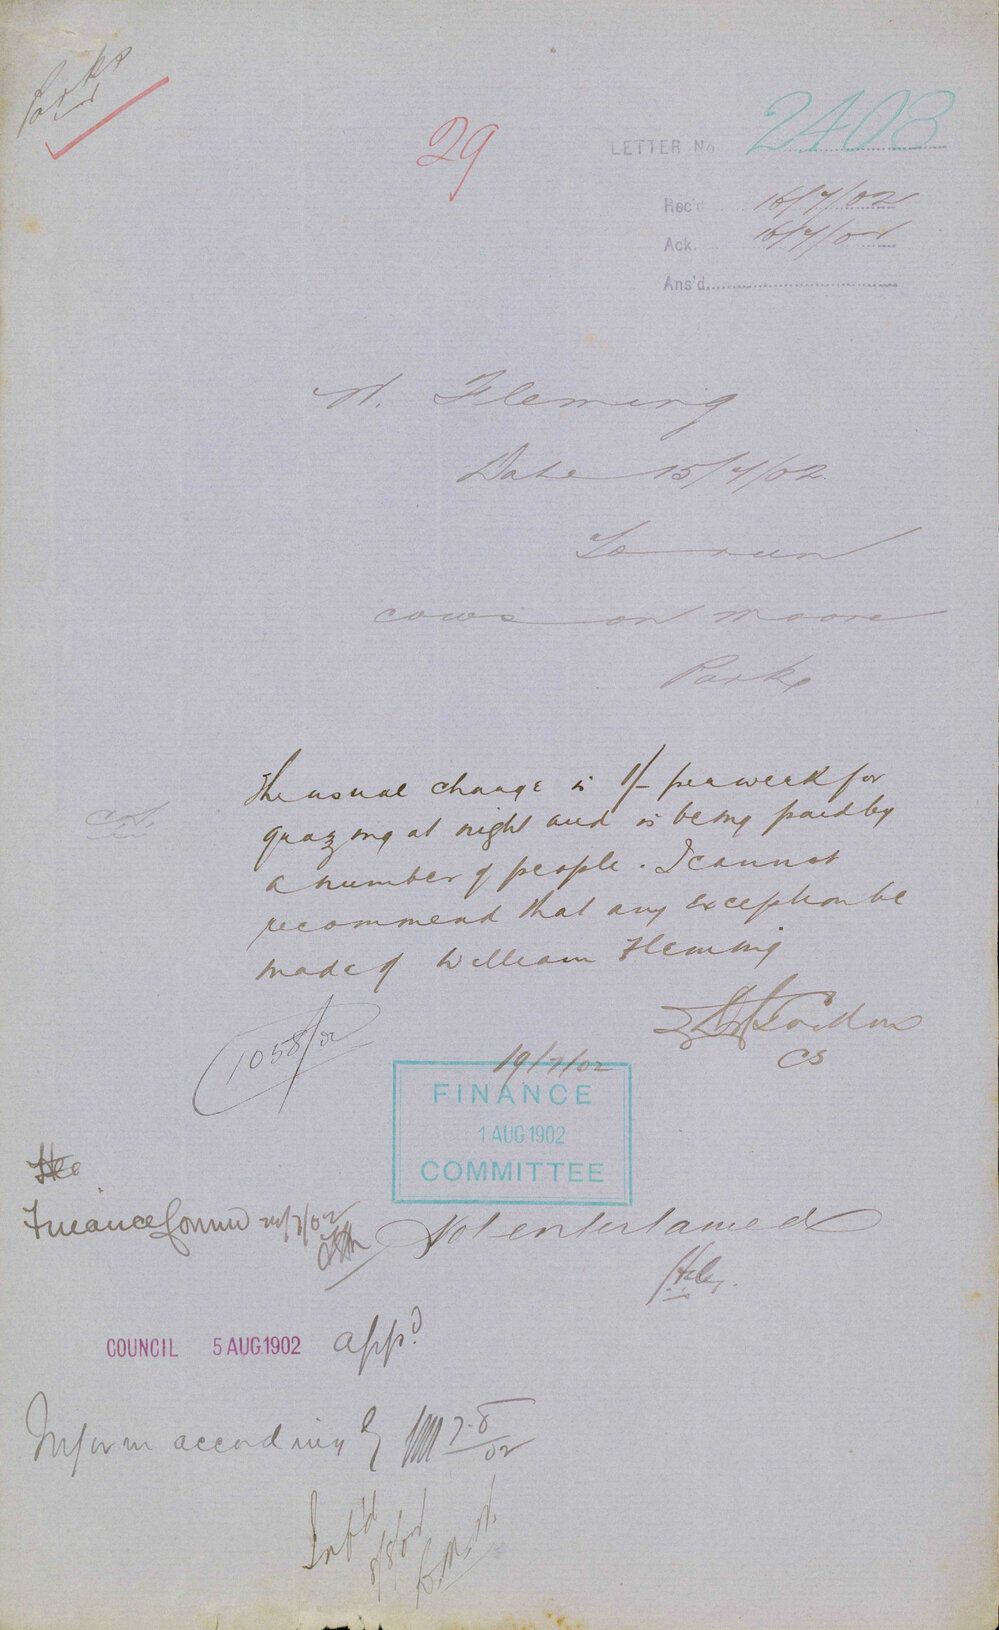 Parks
29
LETTER No 2403
Rec'd 16/7/02
Ack. 16/7/02
Ans'd
W. Fleming
Date 15/7/02
To run
cows on Moore
Park
C.S.
The usual charge is 1/- per week for
grazing at night and is being paid by
a number of people. I cannot
recommend that any exception be
made of William Fleming
CS
19/7/02
1058/02
FINANCE
1 AUG 1902
COMMITTEE
The
Finance Comm
Not entertained
COUNCIL 5 AUG.1902 app.d
Inform accordingly 7-8/02
Inf'd
8/8/02